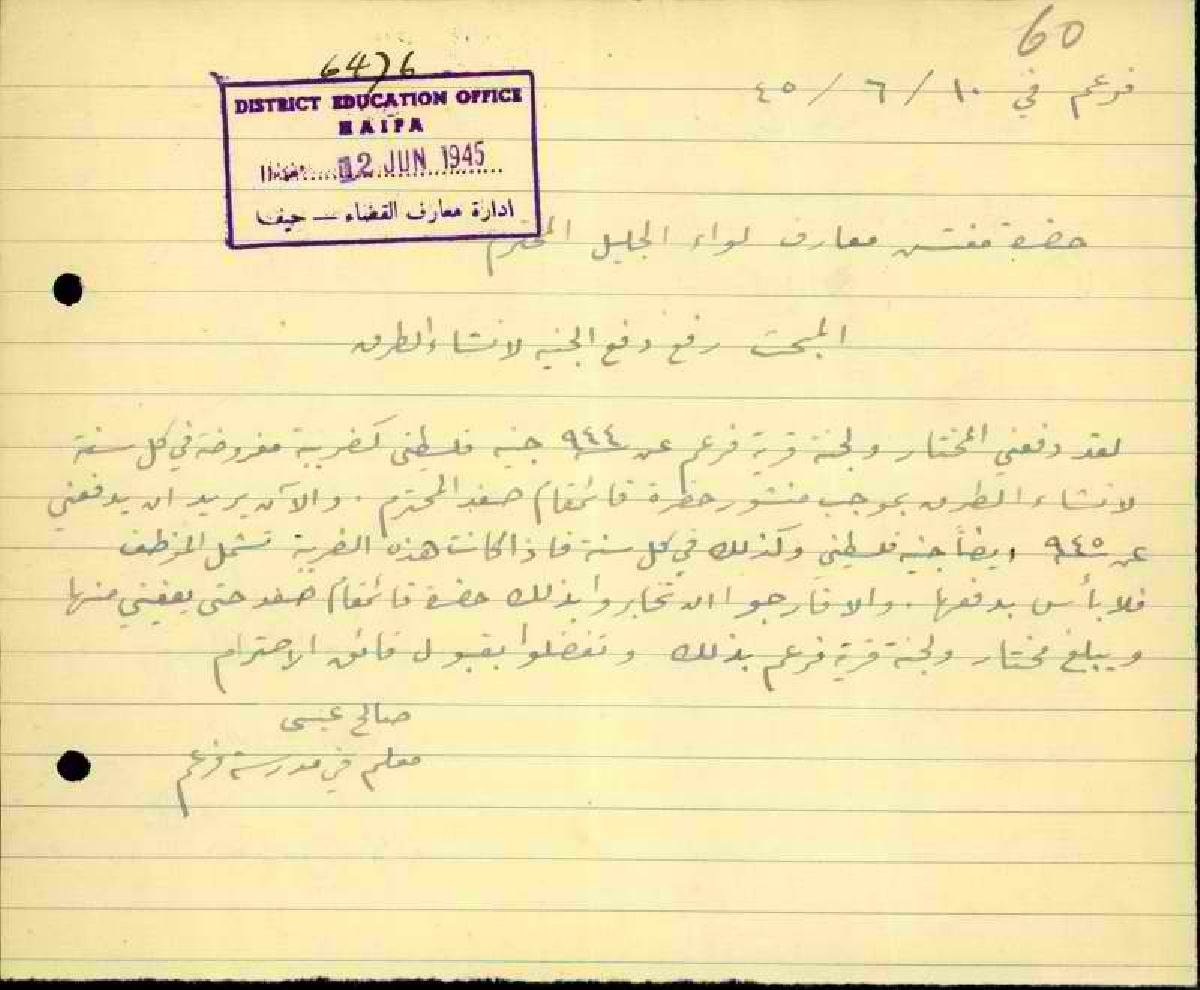 60
فرعم في ١٠ / ٦ / ٤٥
6476
DISTRICT EDUCATION OFFICE
HAIFA
12 JUN 1945
ادارة معارف القضاء — حيفا
حضرة مفتش معارف لواء الجليل المحترم
المبحث رفع دفع الجنيه لانشاء الطرق
لقد دفعني المختار ولجنة قرية فرعم عن ٩٤٤ جنيه فلسطيني كضريبة مفروضة في كل سنة
لانشاء الطرق بموجب منشور حضرة قائمقام صفد المحترم . والآن يريد ان يدفعني
عن ٩٤٥ ايضاً جنيه فلسطيني وكذلك في كل سنة فاذا كانت هذه الضريبة تشمل الموظف
فلا بأس بدفعها . والا فارجوا ان تخابروا بذلك حضرة قائمقام صفد حتى يعفيني منها
ويبلغ مختار ولجنة قرية فرعم بذلك وتفضلوا بقبول فائق الاحترام
صالح عيسى
معلم في مدرسة فرعم